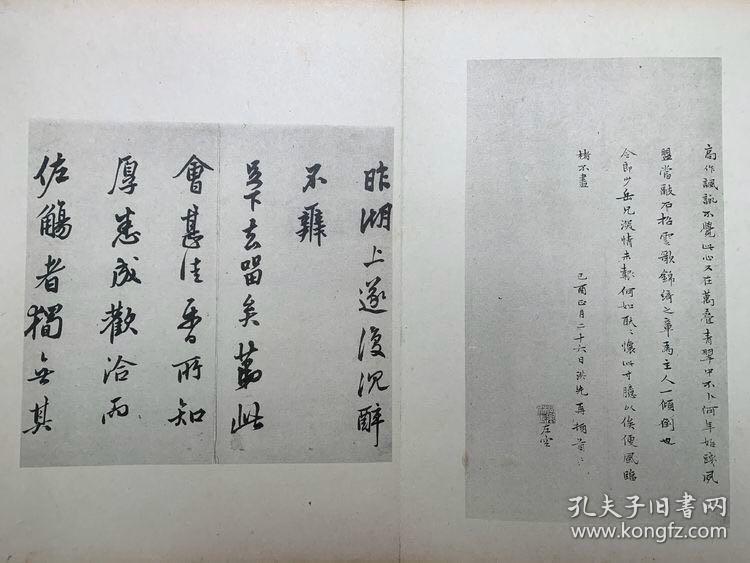 高作諷詠不覺此心又在萬叠青翠中不卜何年始踐夙
盟當敲石招雲歌錦綺之章為主人一傾倒也
令郎少岳兄深情未報何如耿〻懷此寸臆以俟便風臨
楮不盡
己酉正月二十六日洪先再頓首〻
左空
昨湖上遂復沉醉
不辭
足下去留矣第此
會甚佳吾所知
厚悉成歡洽而
佐觴者獨無其
孔夫子旧书网
www.kongfz.com